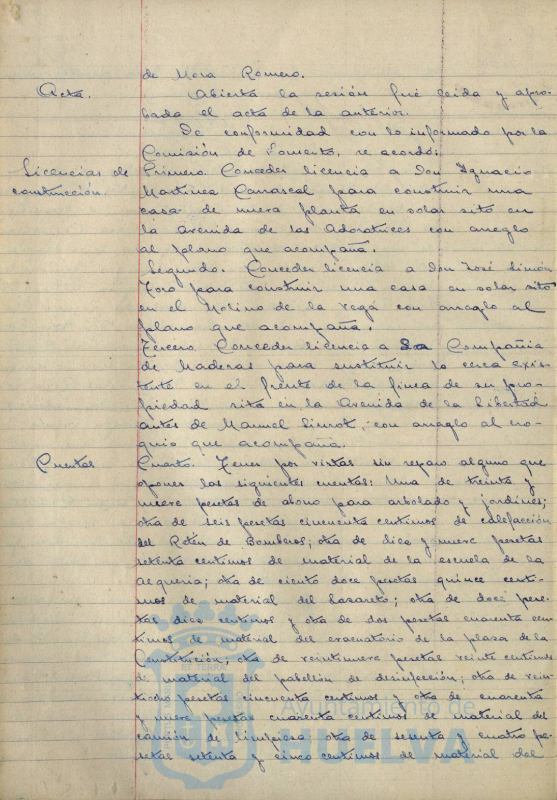 de Mora Romero.
Acta.
Abierta la sesión fué leida y apro-
bada el acta de la anterior.
De conformidad con lo informado por la
Comisión de Fomento, se acordó:
Licencias de
construcción.
Primero. Conceder licencia a Don Ignacio
Martinez Carrascal para construir una
casa de nueva planta en solar sito en
la Avenida de las Adoratrices con arreglo
al plano que acompaña.
Segundo. Conceder licencia a Don José Limón
Toro para construir una casa en solar sito
en el Molino de la Vega con arreglo al
plano que acompaña.
Tercero. Conceder licencia a La Compañia
de Maderas para sustituir la cerca exis-
tente en el frente de la finca de su pro-
piedad sita en la Avenida de la Libertad
antes de Manuel Siurot, con arreglo al cro-
quis que acompaña.
Cuentas
Cuarto. Tener por vistas sin reparo alguno que
oponer las siguientes cuentas: Una de treinta y
nueve pesetas de abono para arbolado y jardines;
otra de seis pesetas cincuenta centimos de calefacción
del Retén de Bomberos; otra de diez y nueve pesetas
setenta centimos de material de la escuela de la
Alqueria; otra de ciento doce pesetas quince centi-
mos de material del Lazareto; otra de doce pese-
tas diez centimos y otra de dos pesetas cuarenta cen-
timos de material del evacuatorio de la plaza de la
Constitución; otra de veintinueve pesetas veinte centimos
de material del pabellón de desinfección; otra de vein-
tiocho pesetas cincuenta centimos y otra de cuarenta
y nueve pesetas cuarenta centimos de material del
camión de limpieza; otra de sesenta y cuatro pe-
setas setenta y cinco centimos de material del
Ayuntamiento de
HUELVA